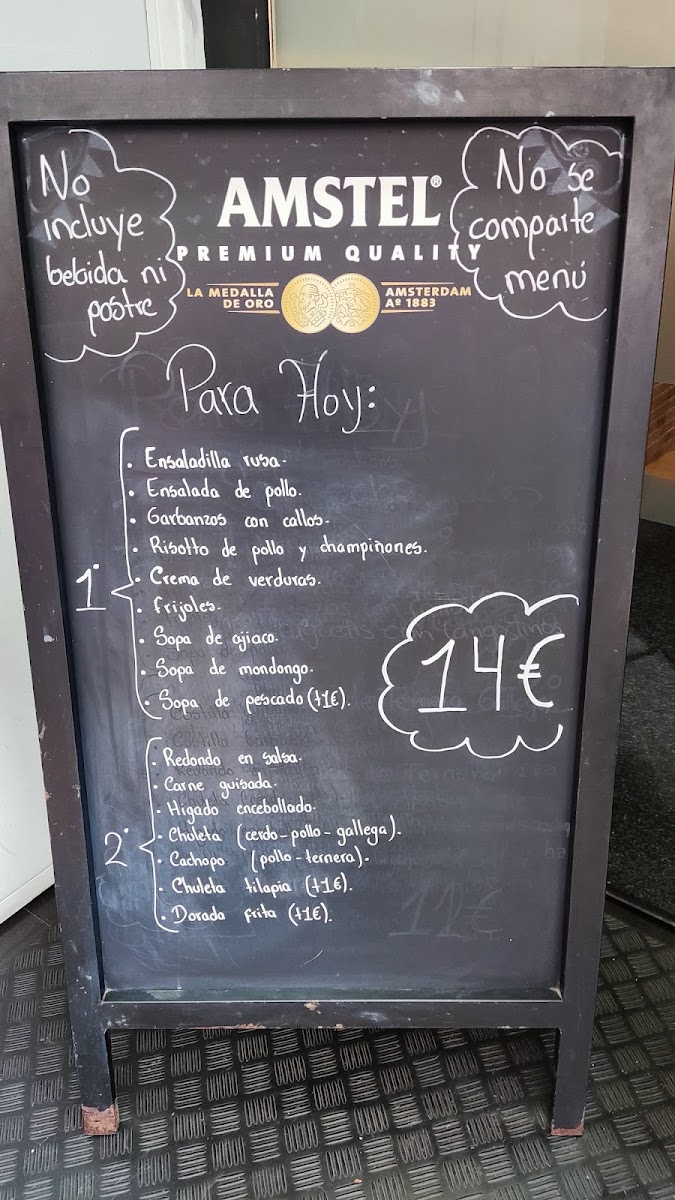 No
incluye
bebida ni
postre
AMSTEL®
PREMIUM QUALITY
LA MEDALLA
DE ORO
AMSTERDAM
Aº 1883
No se
comparte
menú
Para Hoy:
1º
· Ensaladilla rusa.
· Ensalada de pollo.
· Garbanzos con callos.
· Risotto de pollo y champiñones.
· Crema de verduras.
· Frijoles.
· Sopa de ajiaco.
· Sopa de mondongo.
· Sopa de pescado (+1€).
14€
2º
· Redondo en salsa.
· Carne guisada.
· Higado encebollado.
· Chuleta (cerdo-pollo-gallega).
· Cachopo (pollo-ternera).
· Chuleta tilapia (+1€).
· Dorada frita (+1€).